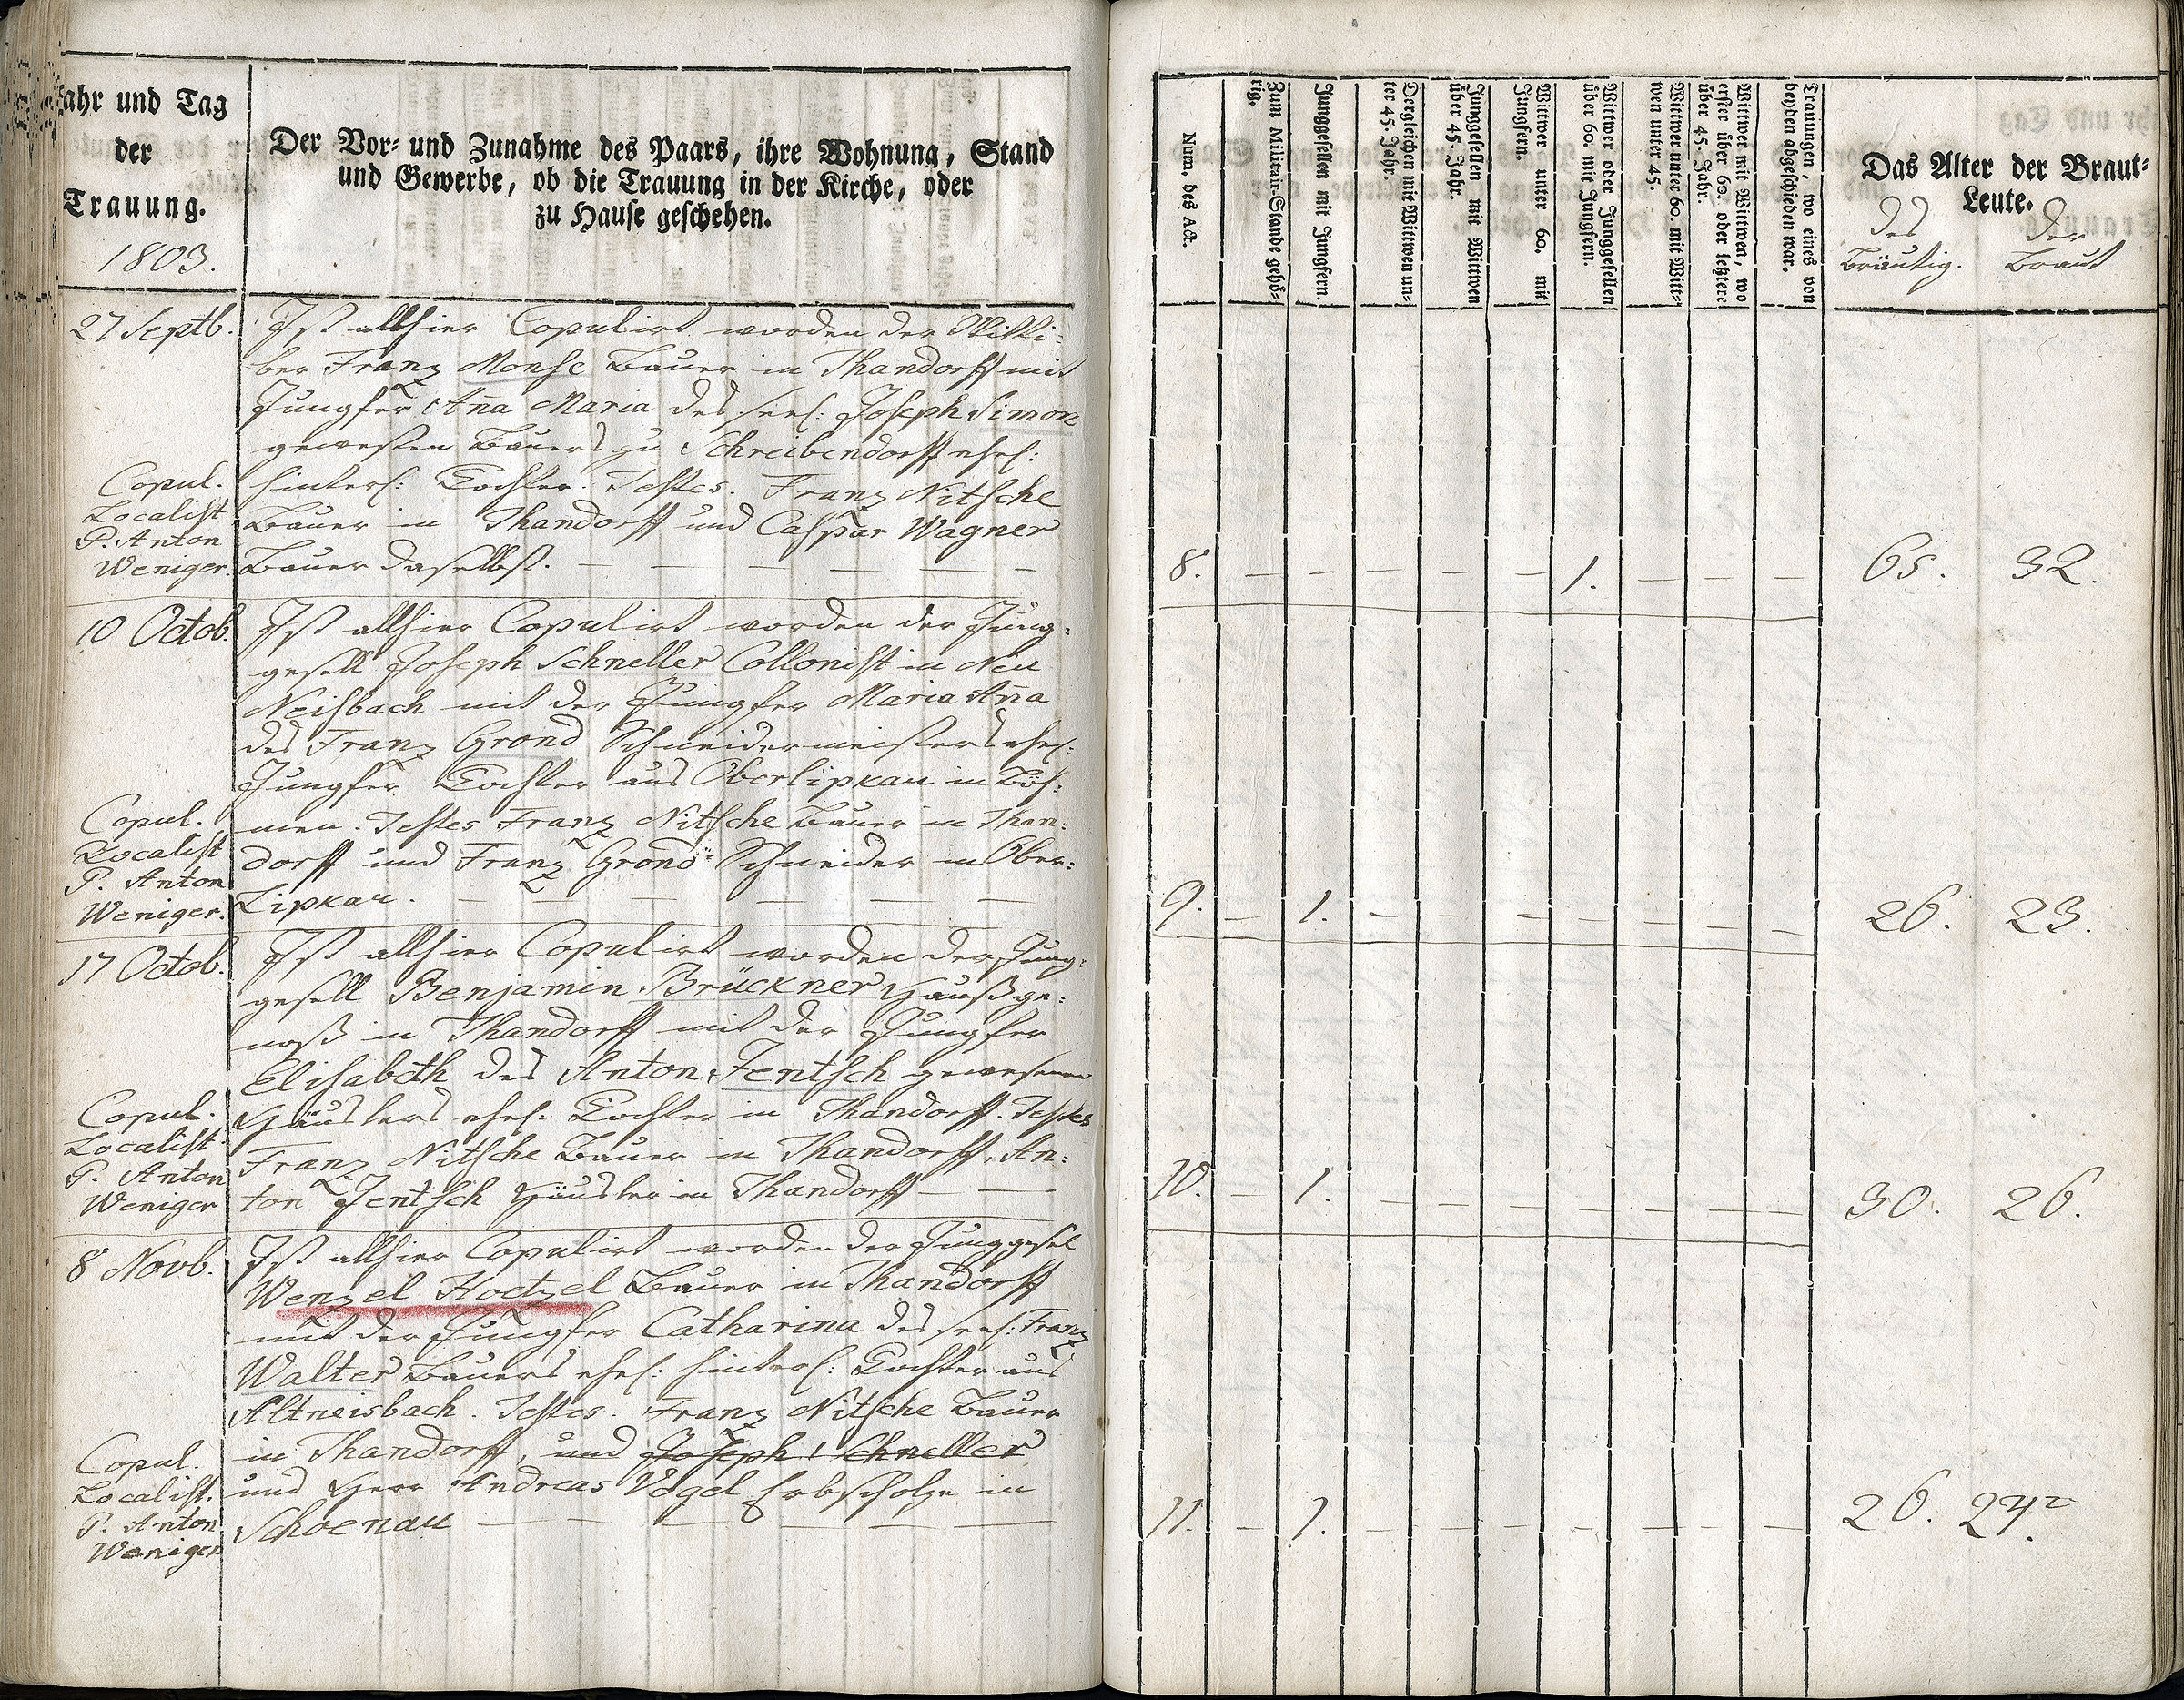 Jahr und Tag
der
Trauung.
1803.
Der Vor- und Zunahme des Paars, ihre Wohnung, Stand
und Gewerbe, ob die Trauung in der Kirche, oder
zu Hause geschehen.
27 Septb.
Ist allhier Copulirt worden der Witti-
ber Franz Monse Bauer in Thandorff mit
Jungfer Aña Maria des seel: Joseph Simon
gewesten Bauers zu Schreibendorff ehel:
hinterl: Tochter. Testes. Franz Nitsche
Bauer in Thandorff und Caspar Wagner
Bauer daselbst.
Copul.
Localist
P. Anton
Weniger.
10 Octob.
Ist allhier Copulirt worden der Jung-
gesell Joseph Schneller Collonist in Neu
Neisbach mit der Jungfer Maria Aña
des Franz Grond Schneidermeisters ehel:
Jungfer Tochter aus Oberlipkau in Böh-
men. Testes Franz Nitsche Bauer in Than-
dorff und Franz Grond Schneider in Ober-
Lipkau.
Copul.
Localist
P. Anton
Weniger.
17 Octob.
Ist allhier Copulirt worden der Jung-
gesell Benjamin Brückner Haußge-
noß in Thandorff mit der Jungfer
Elisabeth des Anton Jentsch gewesenen
Häuslers ehel: Tochter in Thandorff. Testes
Franz Nitsche Bauer in Thandorff, An-
ton Jentsch Häusler in Thandorff
Copul.
Localist
P. Anton
Weniger
8 Novb.
Ist allhier Copulirt worden der Junggesel
Wenzel Hoetzel Bauer in Thandorff
mit der Jungfer Catharina des seel: Franz
Walter Bauers ehel: hinterl: Tochter aus
Altneisbach. Testes. Franz Nitsche Bauer
in Thandorff, und Joseph Schneller
und Herr Andreas Vogel Erbscholze in
Schoenau
Copul.
Localist.
P. Anton
Weniger
Num. des Act.
Zum Militair-Stande gehö-
rig.
Junggesellen mit Jungfern.
Dergleichen mit Wittwen un-
ter 45. Jahr.
Junggesellen mit Wittwen
über 45. Jahr.
Wittwer unter 60. mit
Jungfern.
Wittwer oder Junggesellen
über 60. mit Jungfern.
Wittwer unter 60. mit Witt-
wen unter 45.
Wittwer mit Wittwen, wo
erster über 60. oder letztere
über 45. Jahr.
Trauungen, wo eines von
beyden abgeschieden war.
Das Alter der Braut-
Leute.
des der
Bräutig. Braut
8. 1. 65. 32.
9. 1. 26. 23.
10. 1. 30. 26.
11. 1. 26. 24